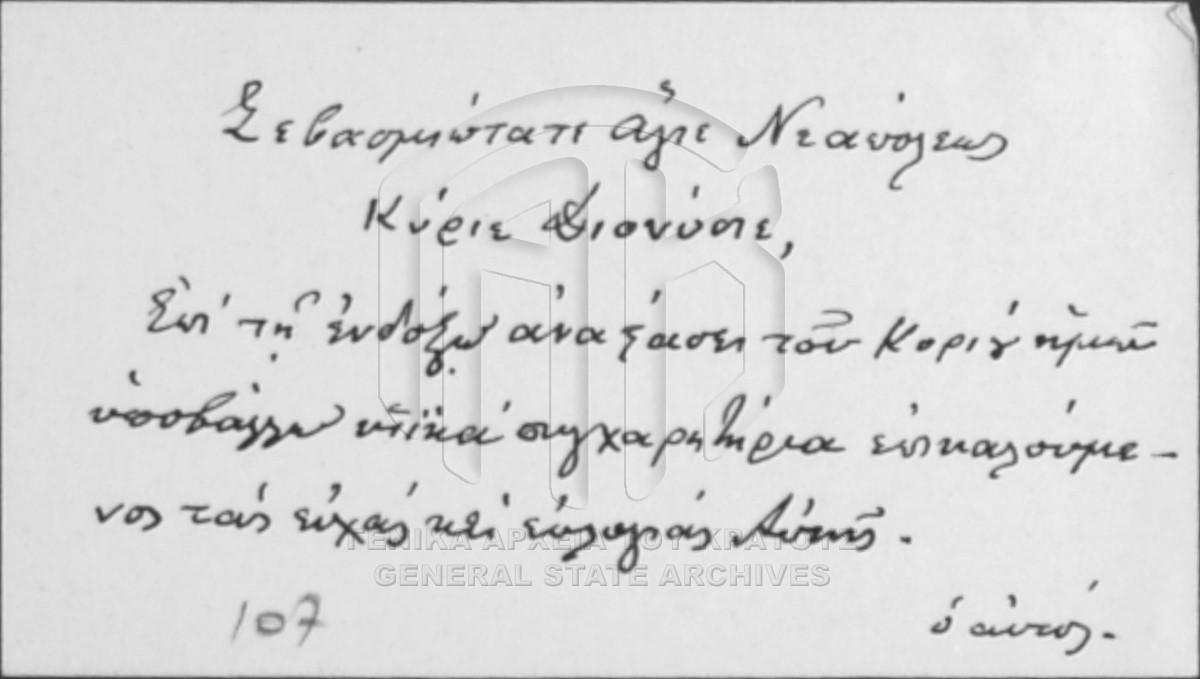 Σεβασμιώτατε Ἅγιε Νεαπόλεως
Κύριε Διονύσιε,
Ἐπὶ τῇ ἐνδόξῳ ἀναστάσει τοῦ Κυρίου ἡμῶν
ὑποβάλλω υἱϊκά συγχαρητήρια ἐπικαλούμε-
νος τάς εὐχάς καί εὐλογίας Αὐτῆς.
ΓΕΝΙΚΑ ΑΡΧΕΙΑ ΤΟΥ ΚΡΑΤΟΥΣ
GENERAL STATE ARCHIVES
107
ὁ αὐτός.